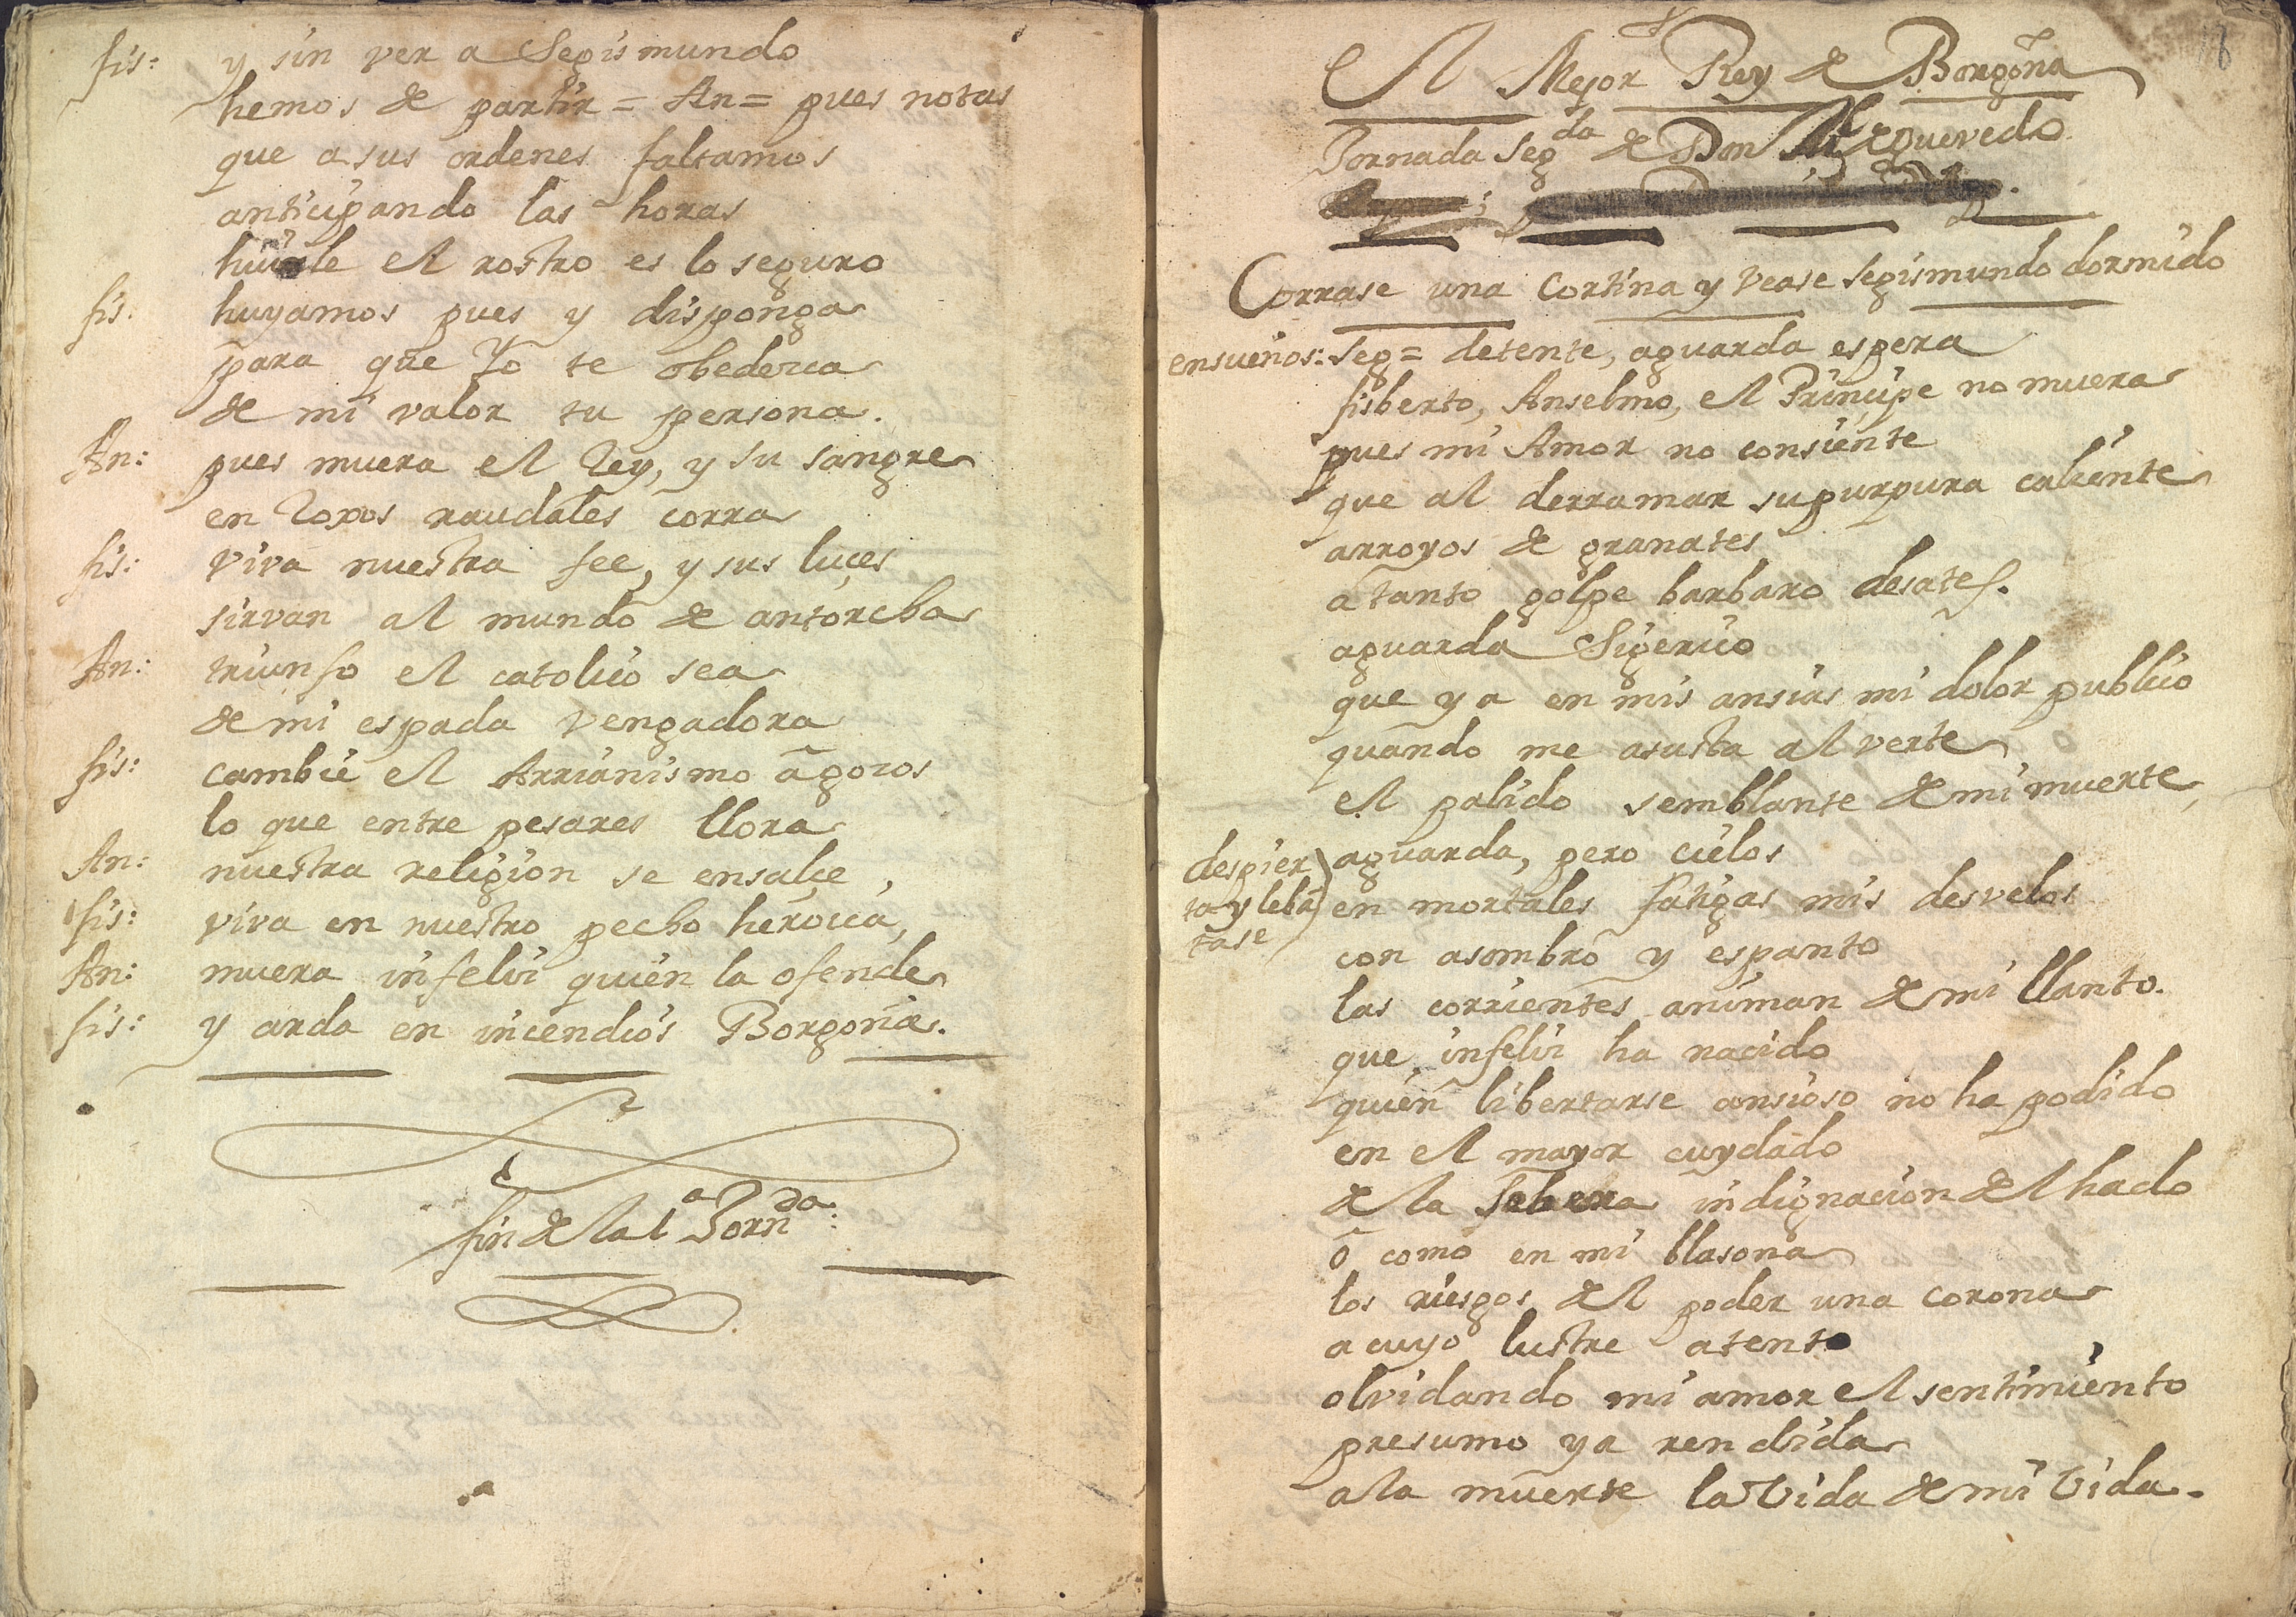 fis: y sin ver a Segismundo
hemos de partir = An = pues notas
que a sus ordenes faltamos
anticipando las horas
huirle el rostro es lo seguro
fis. huyamos pues y disponga
para que Yo te obedezca
de mi valor tu persona.
An: pues muera el Rey, y su sangre
en Roxos raudales corra
fis: viva nuestra fee, y sus luçes
sirvan al mundo de antorcha
An: triunfo el catolico sea
de mi espada vengadora
fis: cambie el Arrianismo a gozos
lo que entre pesares llora
An: nuestra religion se ensalçe,
fis: viva en nuestro pecho heroica,
An: muera infeliz quien la ofende
fis: y arda en incendios Borgoña.
fin de la 1ª Jornda:
18
El Mejor Rey de Borgoña
Jornada Segda de Don de Quevedo
Corrase una Cortina y vease Segismundo dormido
ensueños: Seg = detente, aguarda espera
fisberto, Anselmo, el Principe no muera
pues mi Amor no consiente
que al derramar su purpura caliente
arroyos de granates
a tanto golpe barbaro desates.
aguarda Sigerico
que ya en mis ansias mi dolor publico
quando me asusta al verte
el palido semblante de mi muerte
despier aguarda, pero cielos
ta y lebã en mortales fatigas mis desvelos
tase con asombro y espanto
las corrientes animan de mi llanto.
que infeliz ha nacido
quien libertarse ansioso no ha podido
en el mayor cuydado
de la indignacion del hado
ô como en mi blasona
los riesgos del poder una corona
a cuyo lustre atento
olvidando mi amor el sentimiento
presumo ya rendida
a la muerte la Vida de mi Vida.